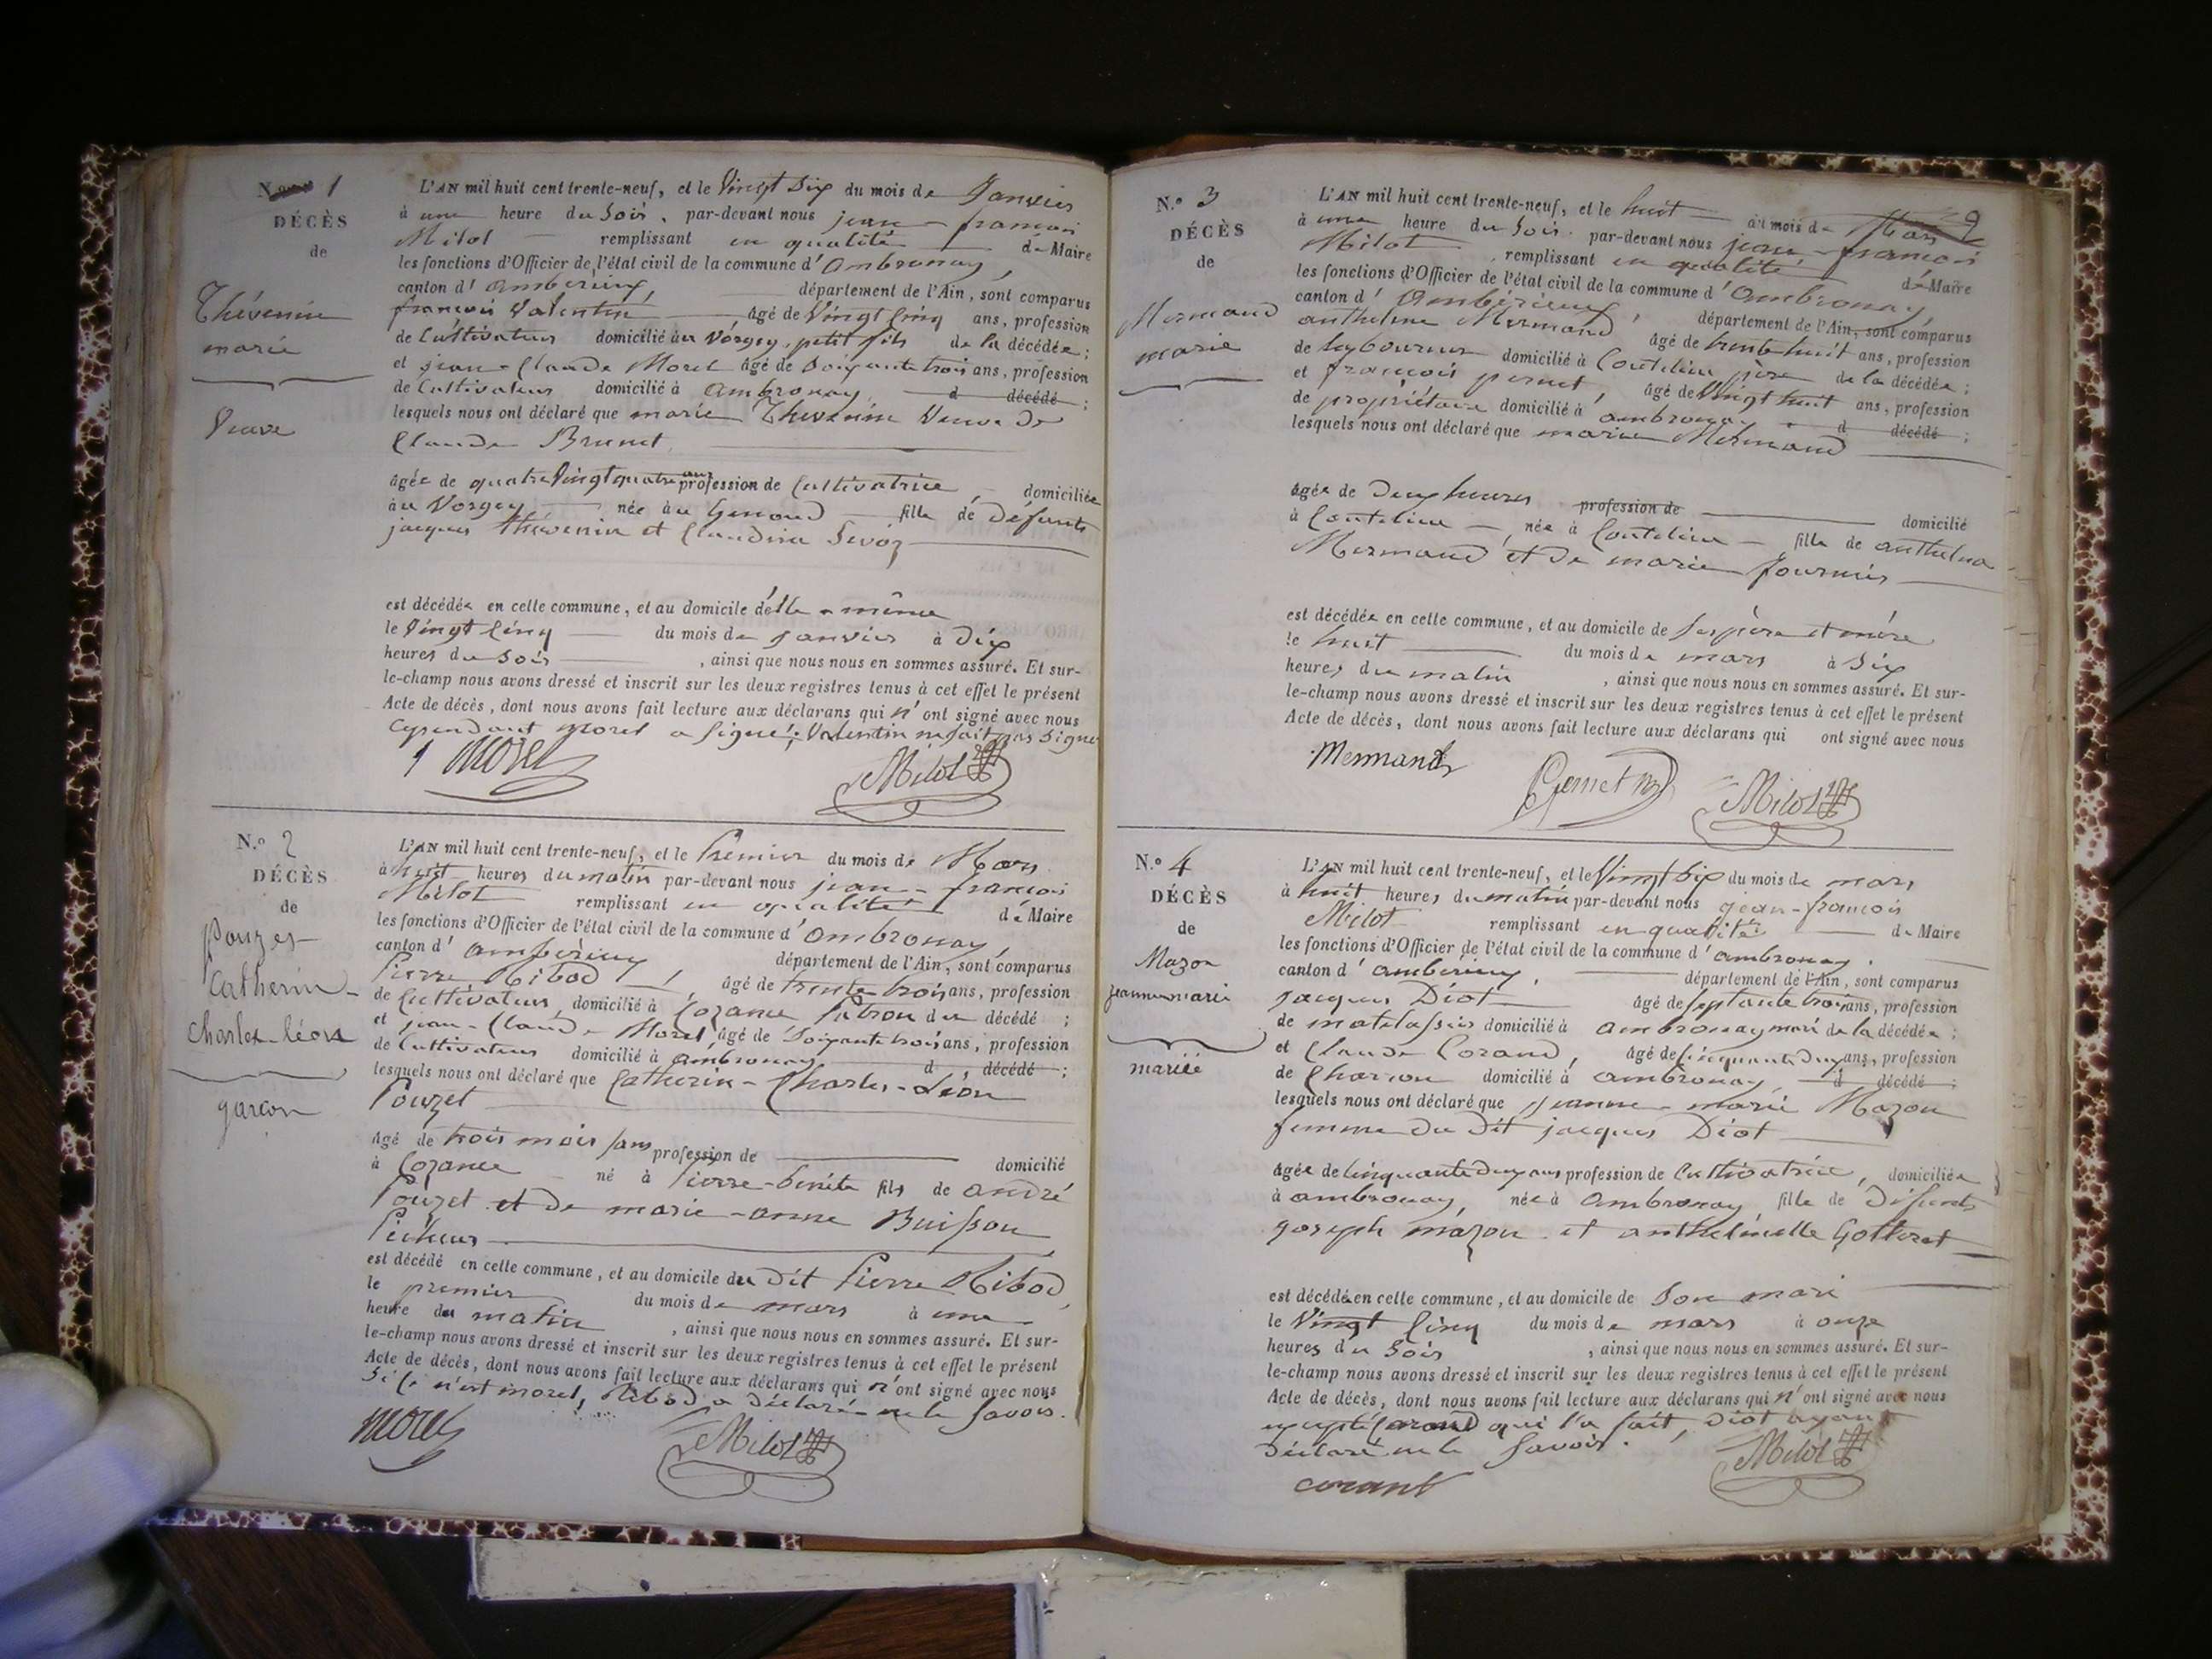 N.º 1
DÉCÈS
de
Thévenin
marie
Veuve
L'AN mil huit cent trente-neuf, et le Vingt Six du mois de Janvier
à une heure du Soir, par-devant nous jean-françois
Milot remplissant en qualité de Maire
les fonctions d'Officier de l'état civil de la commune d'Ambronay,
canton d'Ambérieux, département de l'Ain, sont comparus
françois Valentin âgé de Vingt Cinq ans, profession
de Cultivateur domicilié au Vorgey, petit fils de la décédée;
et jean-Claude Morel âgé de Soixante trois ans, profession
de Cultivateur domicilié à Ambronay, d décédé;
lesquels nous ont déclaré que marie Thévenin Veuve de
Claude Brunet
âgée de quatre Vingt quatre ans profession de Cultivatrice, domiciliée
au Vorgey née au Genoud fille de Défunts
jacques Thévenin et Claudine
est décédée en cette commune, et au domicile d'elle-même
le Vingt Cinq du mois de Janvier à dix
heures du Soir, ainsi que nous nous en sommes assuré. Et sur-
le-champ nous avons dressé et inscrit sur les deux registres tenus à cet effet le présent
Acte de décès, dont nous avons fait lecture aux déclarans qui n'ont signé avec nous
Cependant Morel a signé; Valentin ne sait pas signer
Morel Milot
N.º 2
DÉCÈS
de
Pouzet
Catherin-
Charles-léon
garçon
L'AN mil huit cent trente-neuf, et le Premier du mois de Mars
à huit heures du matin par-devant nous jean-françois
Milot remplissant en qualité de Maire
les fonctions d'Officier de l'état civil de la commune d'Ambronay,
canton d'Ambérieux, département de l'Ain, sont comparus
Pierre Ribod, âgé de trente trois ans, profession
de Cultivateur, domicilié à Cozance Patron du décédé;
et jean-Claude Morel, âgé de Soixante trois ans, profession
de Cultivateur domicilié à Ambronay d décédé;
lesquels nous ont déclaré que Catherin-Charles-Léon
Pouzet
âgé de trois mois sans profession de domicilié
à Cozance né à Pierre-bénite fils de andré
Pouzet et de marie-anne Buisson
est décédé en cette commune, et au domicile du dit Pierre Ribod,
le premier du mois de mars à une
heure du matin, ainsi que nous nous en sommes assuré. Et sur-
le-champ nous avons dressé et inscrit sur les deux registres tenus à cet effet le présent
Acte de décès, dont nous avons fait lecture aux déclarans qui n'ont signé avec nous
Si ce n'est morel, Ribod a déclaré ne le savoir.
Morel Milot
N.º 3
DÉCÈS
de
Mermand
marie
9
L'AN mil huit cent trente-neuf, et le huit du mois de Mars
à une heure du Soir. par-devant nous jean-françois
Milot remplissant en qualité de Maire
les fonctions d'Officier de l'état civil de la commune d'Ambronay,
canton d'Ambérieux, département de l'Ain, sont comparus
anthelme Mermand âgé de trente huit ans, profession
de laboureur domicilié à Coutelieu père de la décédée;
et françois pernet, âgé de Vingt huit ans, profession
de propriétaire domicilié à ambronay d décédé;
lesquels nous ont déclaré que marie Mermand
âgée de Deux heures profession de domicilié
à Coutelieu, née à Coutelieu fille de anthelme
Mermand et de marie fournier
est décédée en cette commune, et au domicile de Ses père et mère
le huit du mois de mars à Six
heures du matin, ainsi que nous nous en sommes assuré. Et sur-
le-champ nous avons dressé et inscrit sur les deux registres tenus à cet effet le présent
Acte de décès, dont nous avons fait lecture aux déclarans qui ont signé avec nous
Mermand Pernet Milot
N.º 4
DÉCÈS
de
Mazon
jeanne marie
mariée
L'AN mil huit cent trente-neuf, et le Vingt Six du mois de mars
à huit heures du matin par-devant nous jean-françois
Milot remplissant en qualité de Maire
les fonctions d'Officier de l'état civil de la commune d'ambronay.
canton d'ambérieux, département de l'Ain, sont comparus
jacques Diot âgé de Septante trois ans, profession
de matelassier domicilié à Ambronay mari de la décédée;
et Claude Corand, âgé de Cinquante deux ans, profession
de Charron domicilié à ambronay, d décédé;
lesquels nous ont déclaré que jeanne-marie Mazon
femme du dit jacques Diot
âgée de Cinquante deux ans profession de Cultivatrice, domiciliée
à ambronay, née à Ambronay, fille de Défunts
joseph mazon et anthelmette Gotteret
est décédée en cette commune, et au domicile de Son mari
le Vingt Cinq du mois de mars à onze
heures du Soir, ainsi que nous nous en sommes assuré. Et sur-
le-champ nous avons dressé et inscrit sur les deux registres tenus à cet effet le présent
Acte de décès, dont nous avons fait lecture aux déclarans qui n'ont signé avec nous
excepté Corand qui l'a fait, Diot ayant
déclaré ne le Savoir.
corant Milot